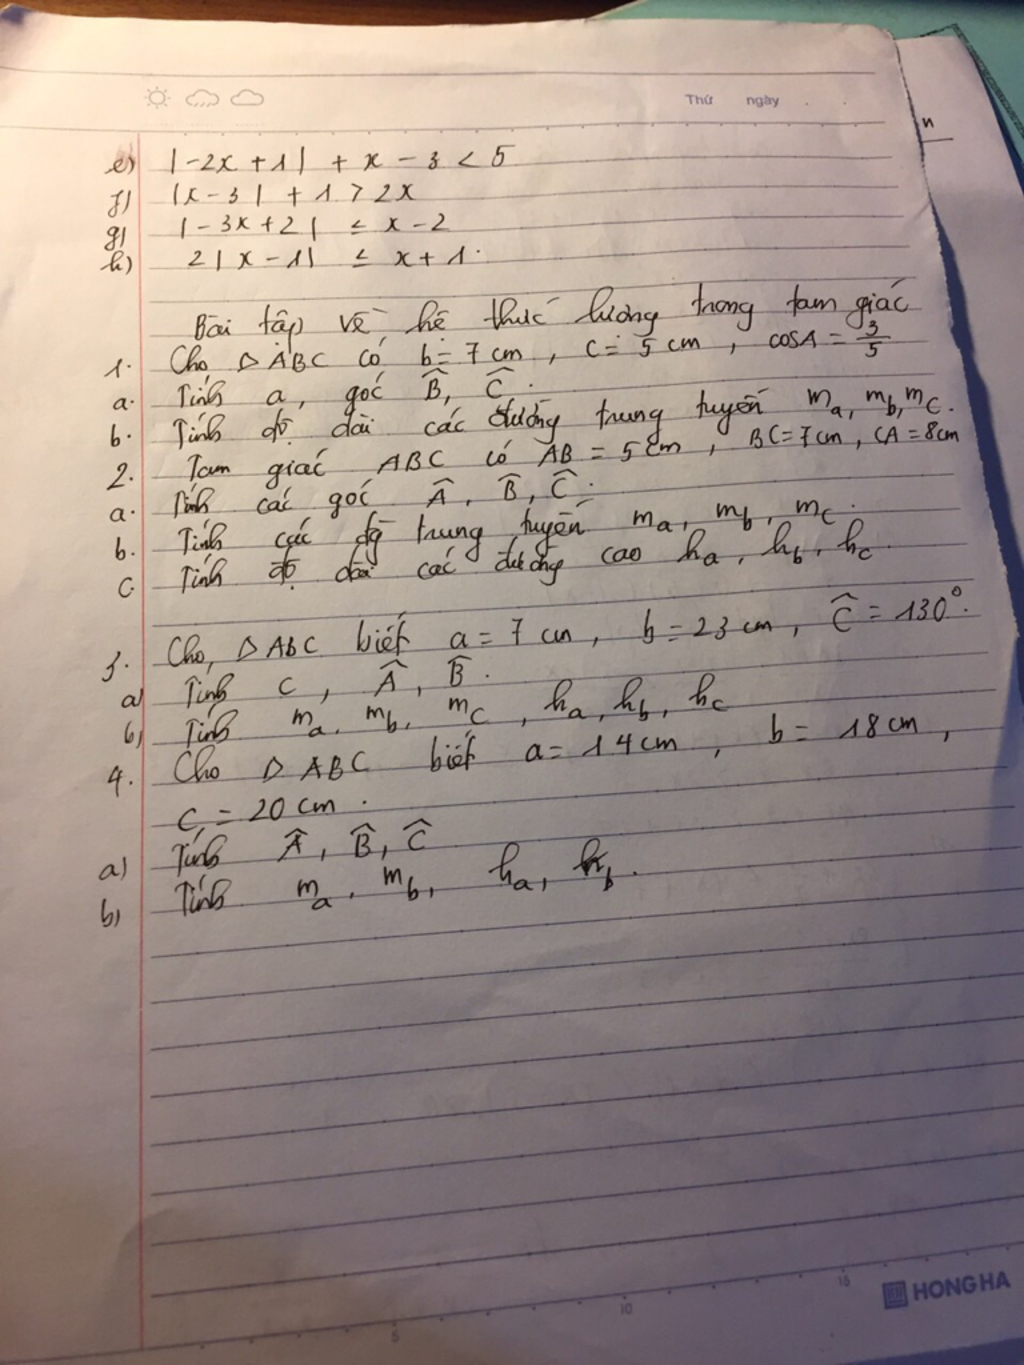 Thứ ngày
n
e) |-2x + 1| + x - 3 < 5
f) |x - 3| + 1 > 2x
g) |-3x + 2| ≤ x - 2
h) 2|x - 1| ≤ x + 1.
Bài tập về hệ thức lượng trong tam giác
1. Cho △ABC có b = 7 cm, c = 5 cm, cosA = 3/5
a. Tính a, góc B̂, Ĉ.
b. Tính độ dài các đường trung tuyến mₐ, m_b, m_c.
2. Tam giác ABC có AB = 5 cm, BC = 7 cm, CA = 8cm
a. Tính các góc Â, B̂, Ĉ.
b. Tính các đg trung tuyến mₐ, m_b, m_c.
c. Tính độ dài các đường cao hₐ, h_b, h_c.
3. Cho △ABC biết a = 7 cm, b = 23 cm, Ĉ = 130°.
a) Tính c, Â, B̂.
b) Tính mₐ, m_b, m_c, hₐ, h_b, h_c
4. Cho △ABC biết a = 14 cm, b = 18 cm,
c = 20 cm.
a) Tính Â, B̂, Ĉ
b) Tính mₐ, m_b, hₐ, h_b.
5 10 15
HONG HA